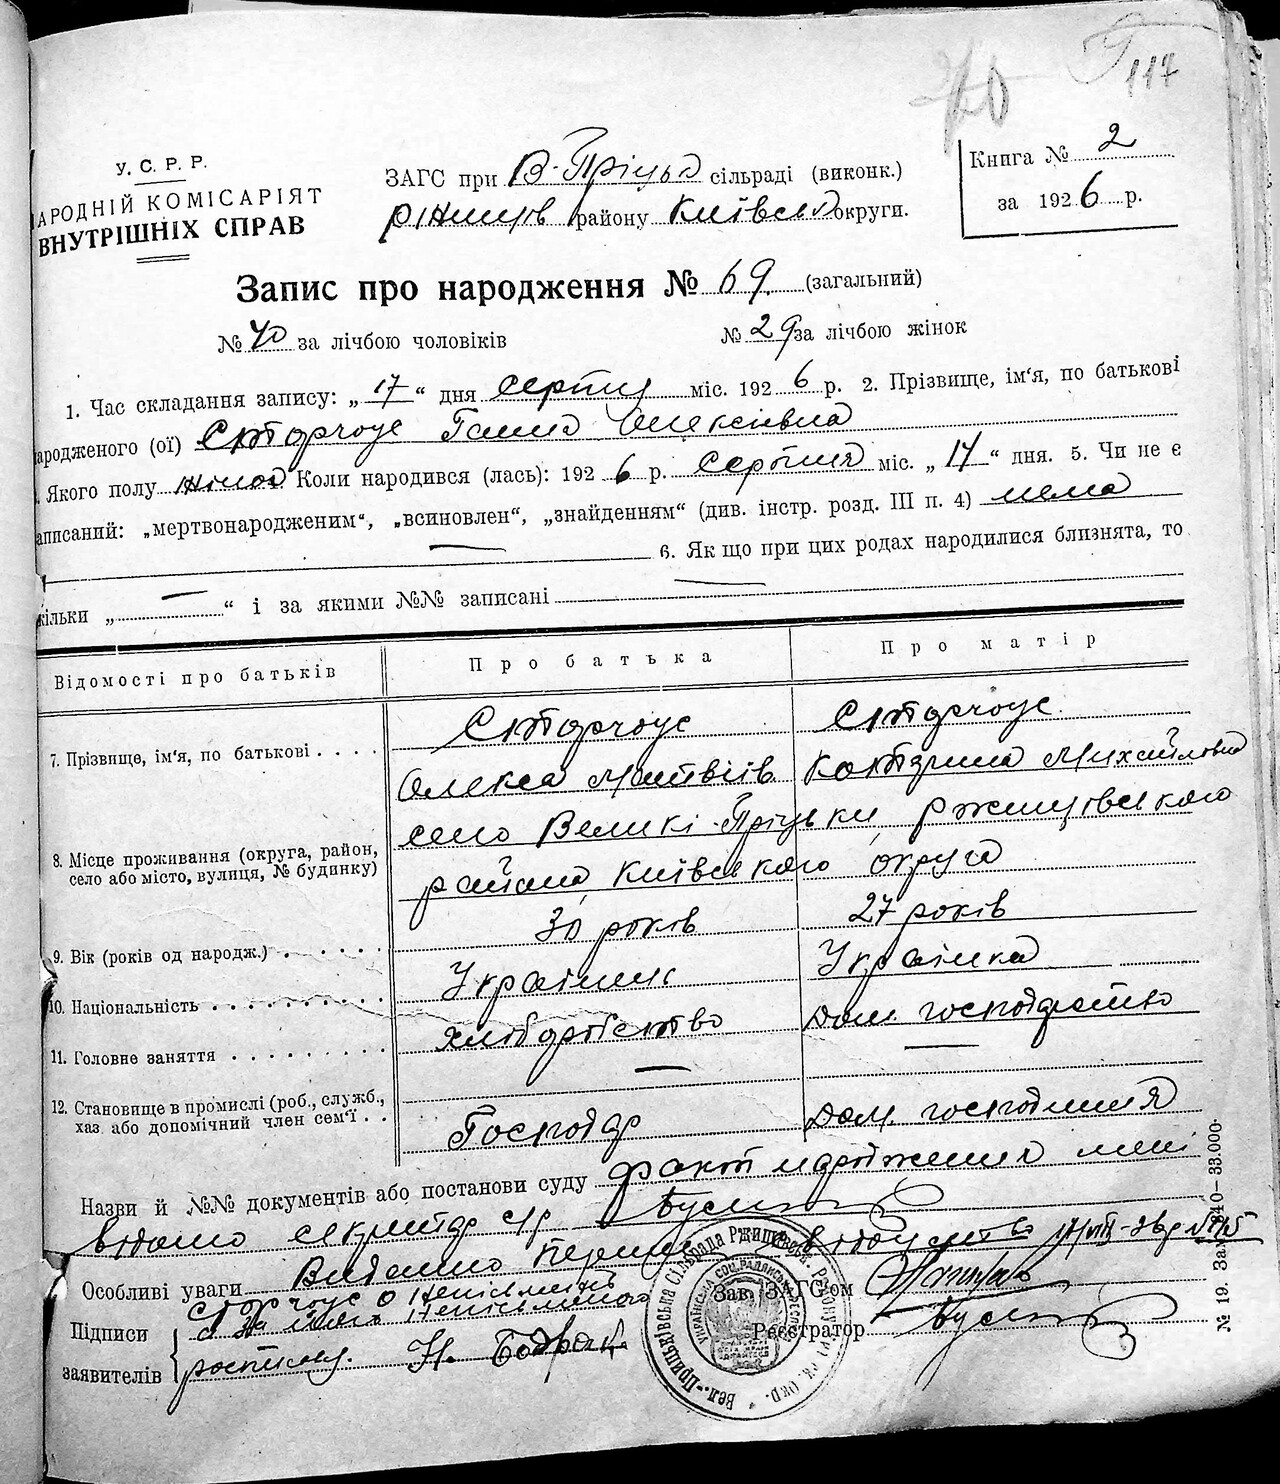 117
У. С. Р. Р.
НАРОДНІЙ КОМІСАРІЯТ
ВНУТРІШНІХ СПРАВ
ЗАГС при В-Пріцька сільраді (виконк.)
району Київської округи.
Книга № 2
за 1926 р.
Запис про народження № 69. (загальний)
№ 40 за лічбою чоловіків № 29 за лічбою жінок
1. Час складання запису: „17“ дня серпня міс. 1926 р. 2. Прізвище, ім'я, по батькові
народженого (ої) Сторчоус Ганна Олексіївна
Якого полу жіноч Коли народився (лась): 1926 р. серпня міс. „14“ дня. 5. Чи не є
записаний: „мертвонародженим“, „всиновлен“, „знайденням“ (див. інстр. розд. III п. 4) нема
— 6. Як що при цих родах народилися близнята, то
скільки „ — “ і за якими №№ записані —
Відомості про батьків Про батька Про матір
7. Прізвище, ім'я, по батькові . . . . Сторчоус Сторчоус
Олекса Матвіїв Катерина Михайловна
8. Місце проживання (округа, район, село або місто, вулиця, № будинку) село Великі-Пріцьки, Ржищівського
района Київського округа
9. Вік (років од народж.) 30 років 27 років
10. Національність Українець Українка
11. Головне заняття хліборобство Дом. господарство
12. Становище в промислі (роб., служб., хаз. або допомічний член сем'ї Господар Дом. господиня
Назви й №№ документів або постанови суду факт народження мені
відомо секретар с/р
Особливі уваги Видано перше
Підписи Сторчоус О неписьмен
заявителів за нього неписьменого
росписся. Н. Бодрак
Зав. ЗАГС'ом
Реєстратор
Вел.-Прицьківська Сільрада Ржищівськ. Району
№ 19. Зак.
40—33.000